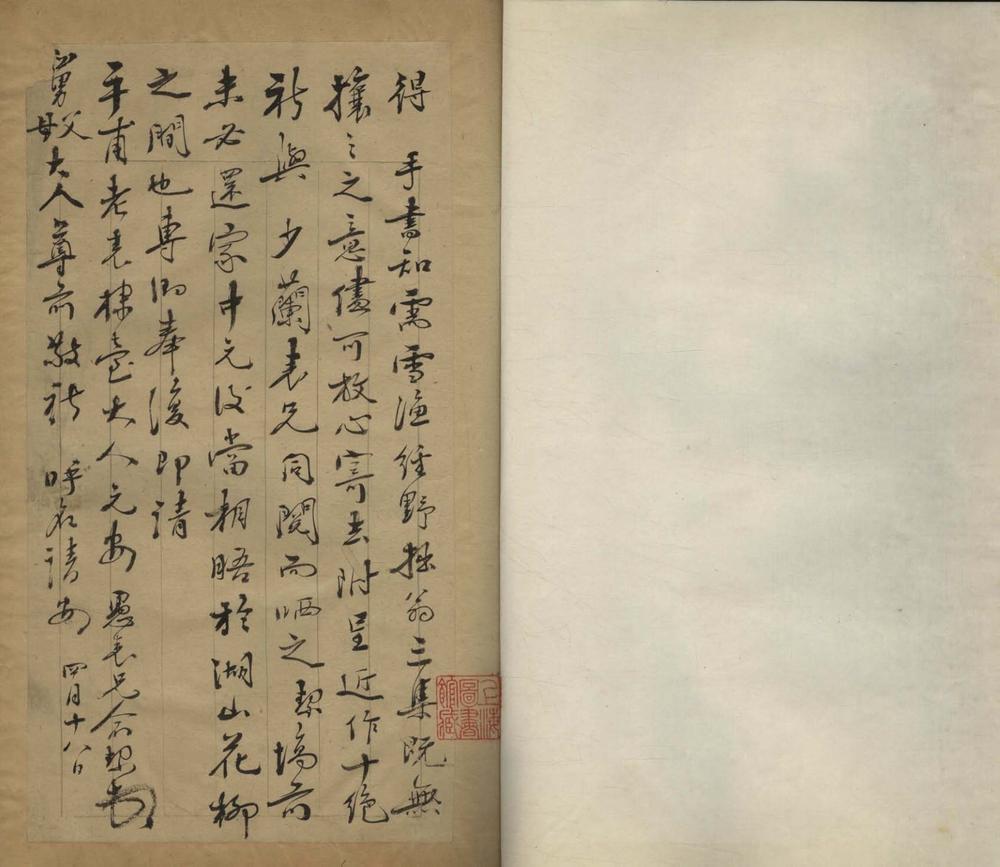 得 手書知需雪漁經野拙翁三集既無
攘之之意儘可放心寄去附呈近作十絕
祈與 少蘭表兄同閱而哂之 塙前
未必還家中元後當相晤於湖山花柳
之間也專泐奉復即請
平甫老表棣臺大人元安 愚表兄 頓
舅父母大人尊前敬祈 呼名請安 四月十八日
上海圖書館藏